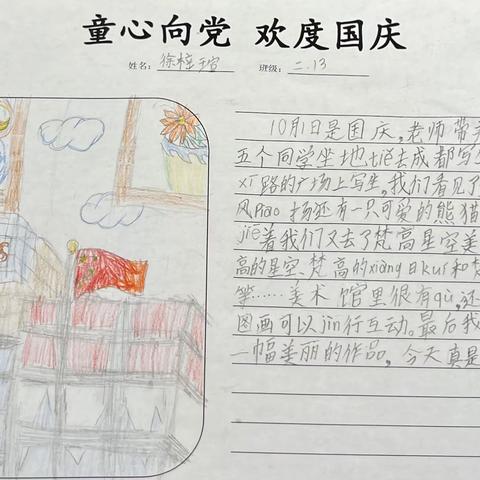 童心向党 欢度国庆
姓名: 徐梓瑄 班级: 二.13
10月1日是国庆,老师带
五个同学坐地tiě去成都写
XT路的广场上写生,我们看见了
风Piāo扬还有一只可爱的熊猫
jiē着我们又去了梵高星空美
高的星空、梵高的xiàng日kuí和
等……美术馆里很有qù,还
图画可以jìn行互动。最后我
一幅美丽的作品,今天真是